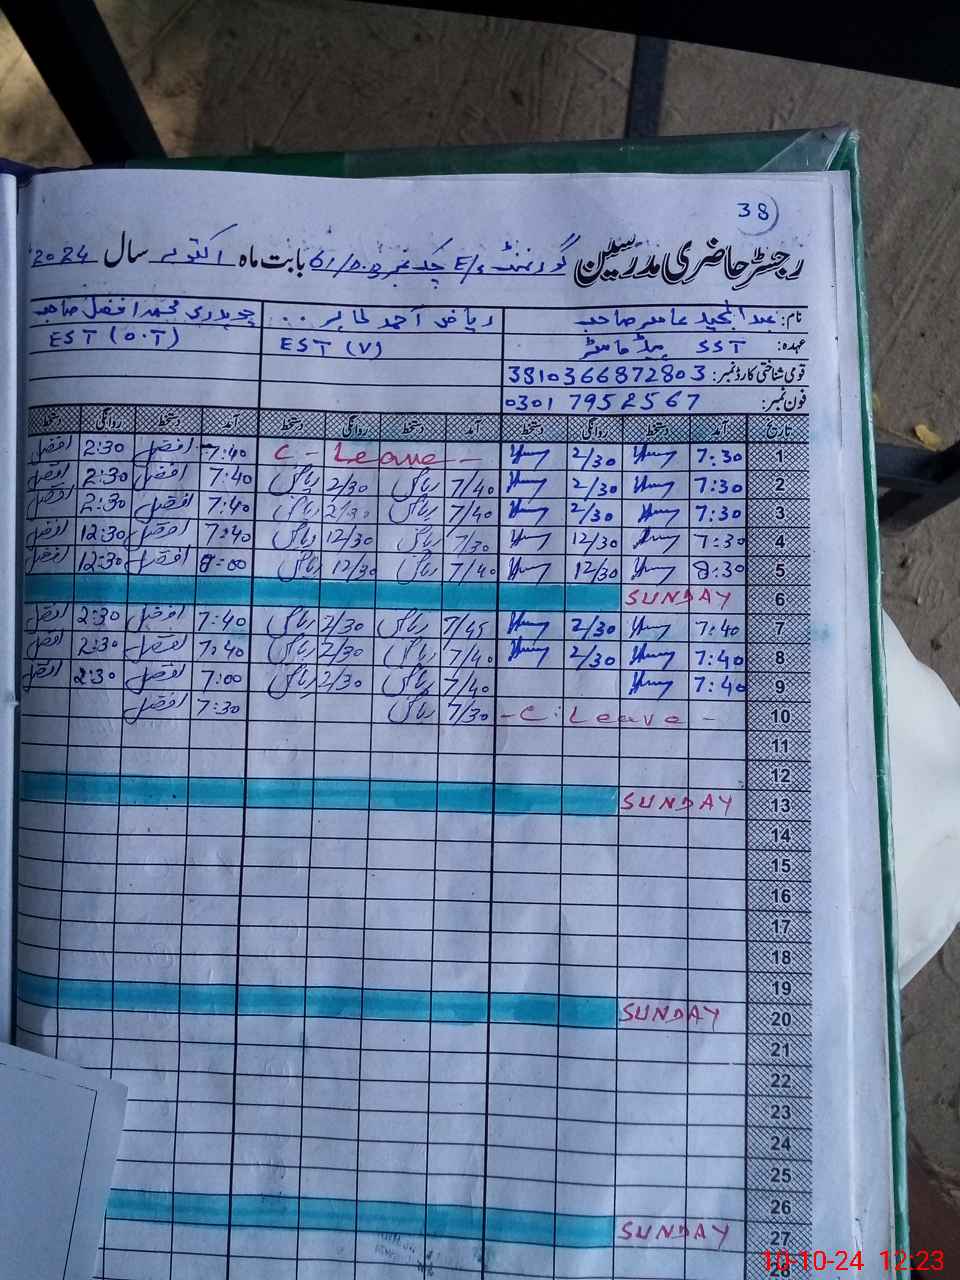 38
رجسٹر حاضری مدرسین گورنمنٹ E/S چک نمبر 61/D.B بابت ماہ اکتوبر سال 2024
نام: عبدالمجید عامر صاحب ریاض احمد طاہر .. چوہدری محمد افضل صاحب
عہدہ: SST ہیڈ ماسٹر EST (V) EST (O.T)
قومی شناختی کارڈ نمبر: 3810366872803
فون نمبر: 0301 7952567
تاریخ آمد دستخط روانگی دستخط آمد دستخط روانگی دستخط آمد دستخط روانگی دستخط
1 7:30 2/30 C - Leave - 7:40 افضل 2:30 افضل
2 7:30 2/30 7/40 ریاض 2/30 ریاض 7:40 افضل 2:30 افضل
3 7:30 2/30 7/40 ریاض 2/30 ریاض 7:40 افضل 2:30 افضل
4 7:30 12/30 7/30 ریاض 12/30 ریاض 7:40 افضل 12:30 افضل
5 8:30 12/30 7/40 ریاض 12/30 ریاض 8:00 افضل 12:30 افضل
6 SUNDAY
7 7:40 2/30 7/45 ریاض 2/30 ریاض 7:40 افضل 2:30 افضل
8 7:40 2/30 7/40 ریاض 2/30 ریاض 7:40 افضل 2:30 افضل
9 7:40 7/40 ریاض 2/30 ریاض 7:00 افضل 2:30 افضل
10 - C. Leave - 7/30 ریاض 7:30 افضل
11
12
13 SUNDAY
14
15
16
17
18
19
20 SUNDAY
21
22
23
24
25
26
27 SUNDAY
28
10-10-24 12:23